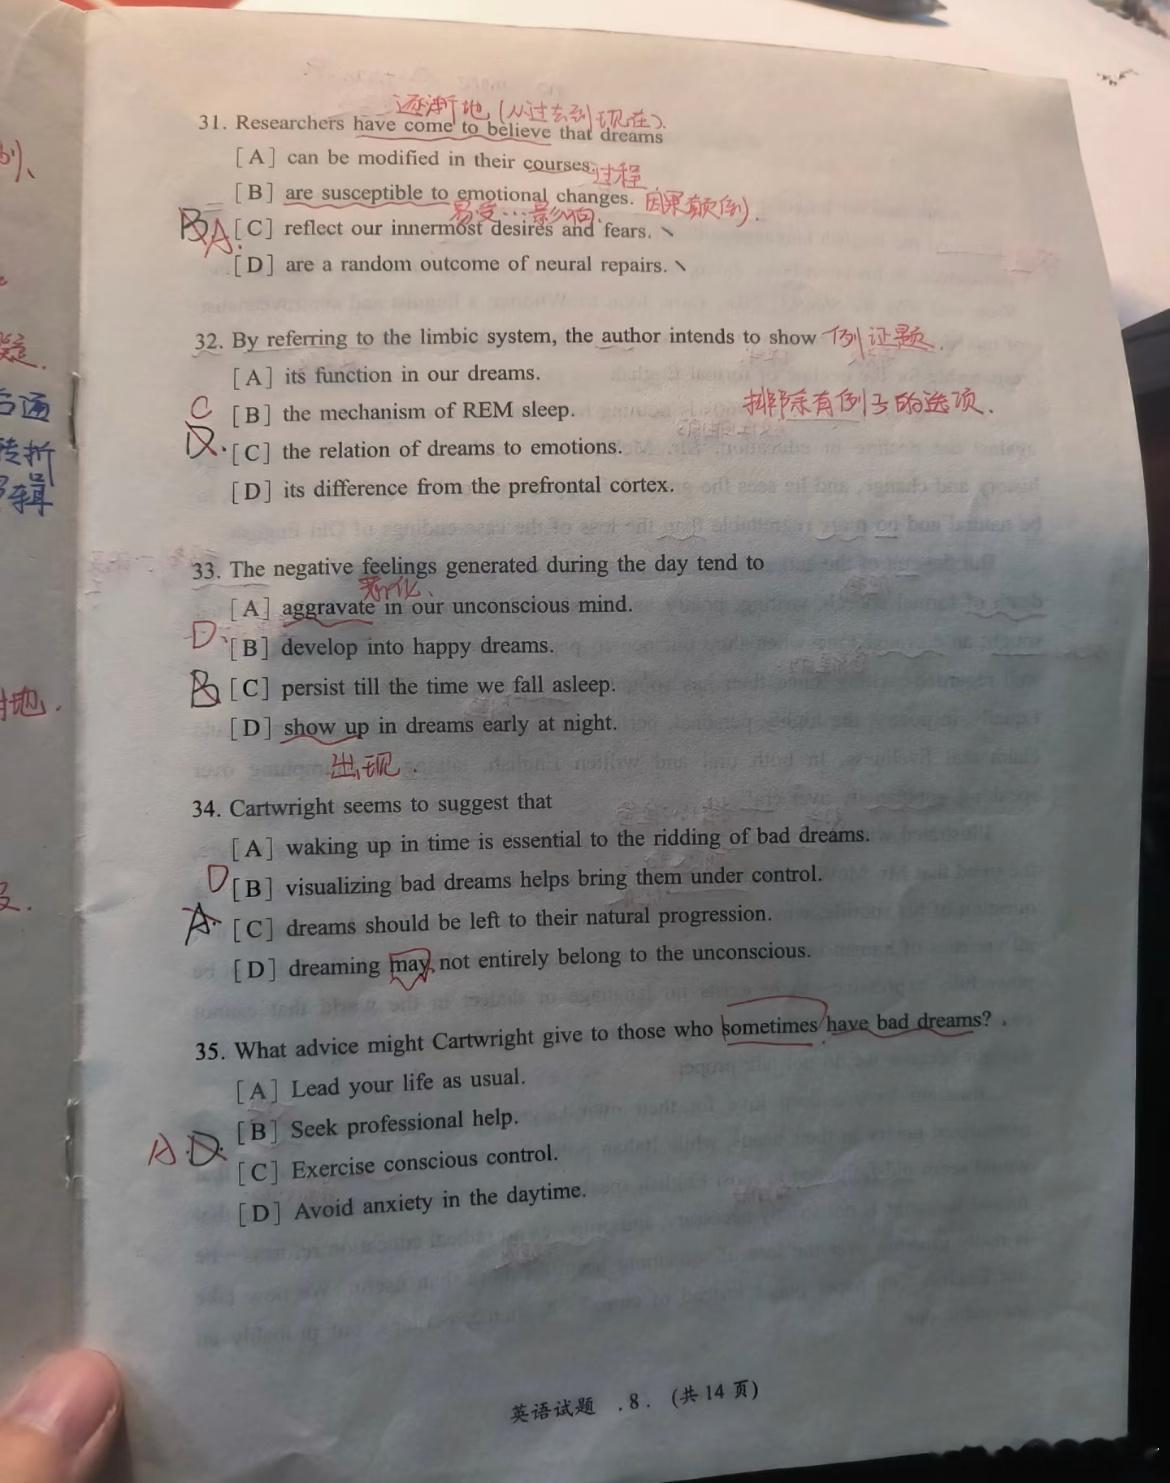 逐渐地(从过去到现在).
31. Researchers have come to believe that dreams
[A] can be modified in their courses. 过程
[B] are susceptible to emotional changes. 因果颠倒).
易受…影响.
B A. [C] reflect our innermost desires and fears. \
[D] are a random outcome of neural repairs. \
32. By referring to the limbic system, the author intends to show 例证题.
[A] its function in our dreams.
C [B] the mechanism of REM sleep. 排除有例子的选项.
D. [C] the relation of dreams to emotions.
[D] its difference from the prefrontal cortex.
33. The negative feelings generated during the day tend to
恶化.
[A] aggravate in our unconscious mind.
D. [B] develop into happy dreams.
B [C] persist till the time we fall asleep.
[D] show up in dreams early at night.
出现.
34. Cartwright seems to suggest that
[A] waking up in time is essential to the ridding of bad dreams.
D [B] visualizing bad dreams helps bring them under control.
A. [C] dreams should be left to their natural progression.
[D] dreaming may not entirely belong to the unconscious.
35. What advice might Cartwright give to those who sometimes have bad dreams?
[A] Lead your life as usual.
[B] Seek professional help.
A. D. [C] Exercise conscious control.
[D] Avoid anxiety in the daytime.
英语试题 .8. (共14页)